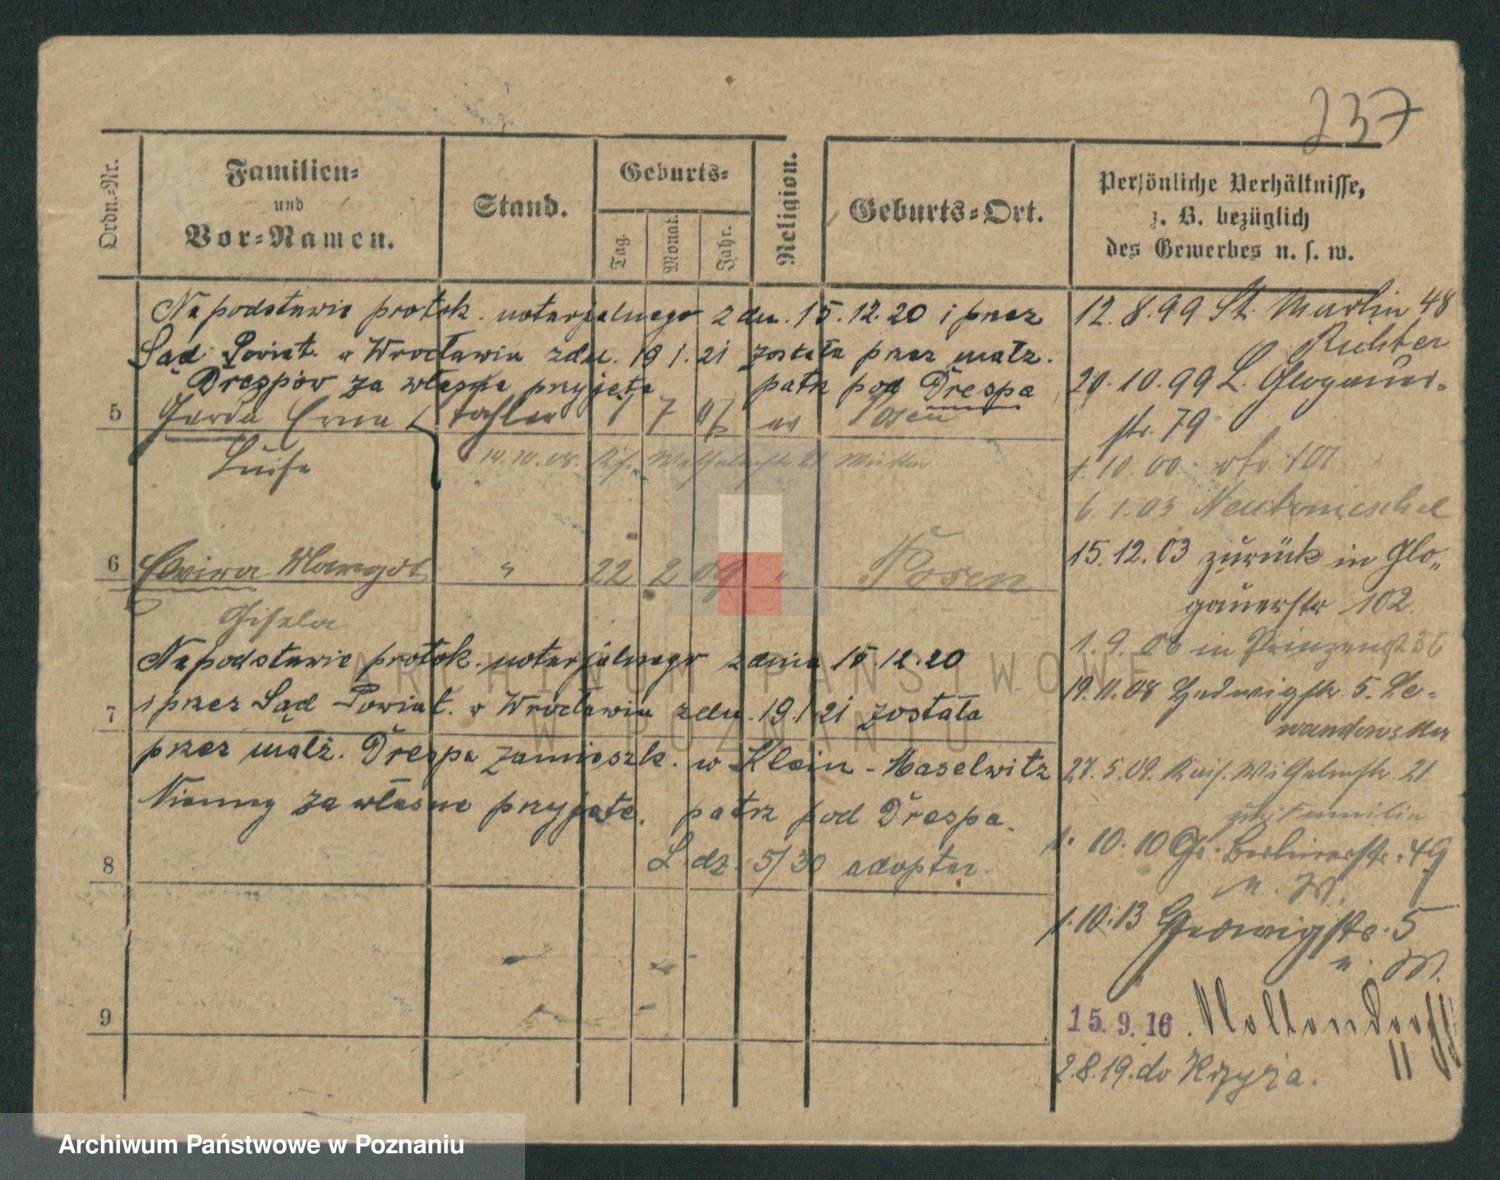 237
Ordn.-Nr.
Familien-
und
Vor-Namen.
Stand.
Geburts-
Tag.
Monat.
Jahr.
Religion.
Geburts-Ort.
Persönliche Verhältnisse,
z. B. bezüglich
des Gewerbes u. s. w.
Na podstawie protok. notarjalnego z dn. 15.12.20 i przez
Sąd Powiat. w Wrocławiu z dn. 19.1.21 została przez małż.
Drespów za własne przyjęte patrz pod Drespa
5 Gerda Erna Tochter 1 7 ev Posen
Luise
14.10.08. Ks. Wilhelmstr 21 Mutter
6 Elwira Margot " 22 2 09 " Posen
Gisela
Na podstawie protok. notarjalnego z dnia 15.12.20
7 i przez Sąd Powiat. w Wrocławiu z dn. 19.1.21 została
przez małż. Drespa zamieszk. w Klein-Maselwitz
Niemcy za własne przyjęte. patrz pod Drespa.
8 L. dz. 5/30 adopter.
9
12.8.99 St. Martin 48
Richter
20.10.99 L. Glogauer-
str. 79
1.10.00 dto 101
6.1.03 Neutomischel
15.12.03 zurück in Glo-
gauerstr 102.
1.9.06 in Prinzenst 36
19.11.08 Hedwigstr. 5. Le-
wandowska
27.5.09. Kais. Wilhelmstr. 21
mit Familie
1.10.10 Gr. Berlinerstr. 49
u. W.
1.10.13 Hedwigstr. 5
u. W.
15.9.16. Nollendorffstr
11
2.8.19. do Krzyża.
ARCHIWUM PAŃSTWOWE
W POZNANIU
Archiwum Państwowe w Poznaniu